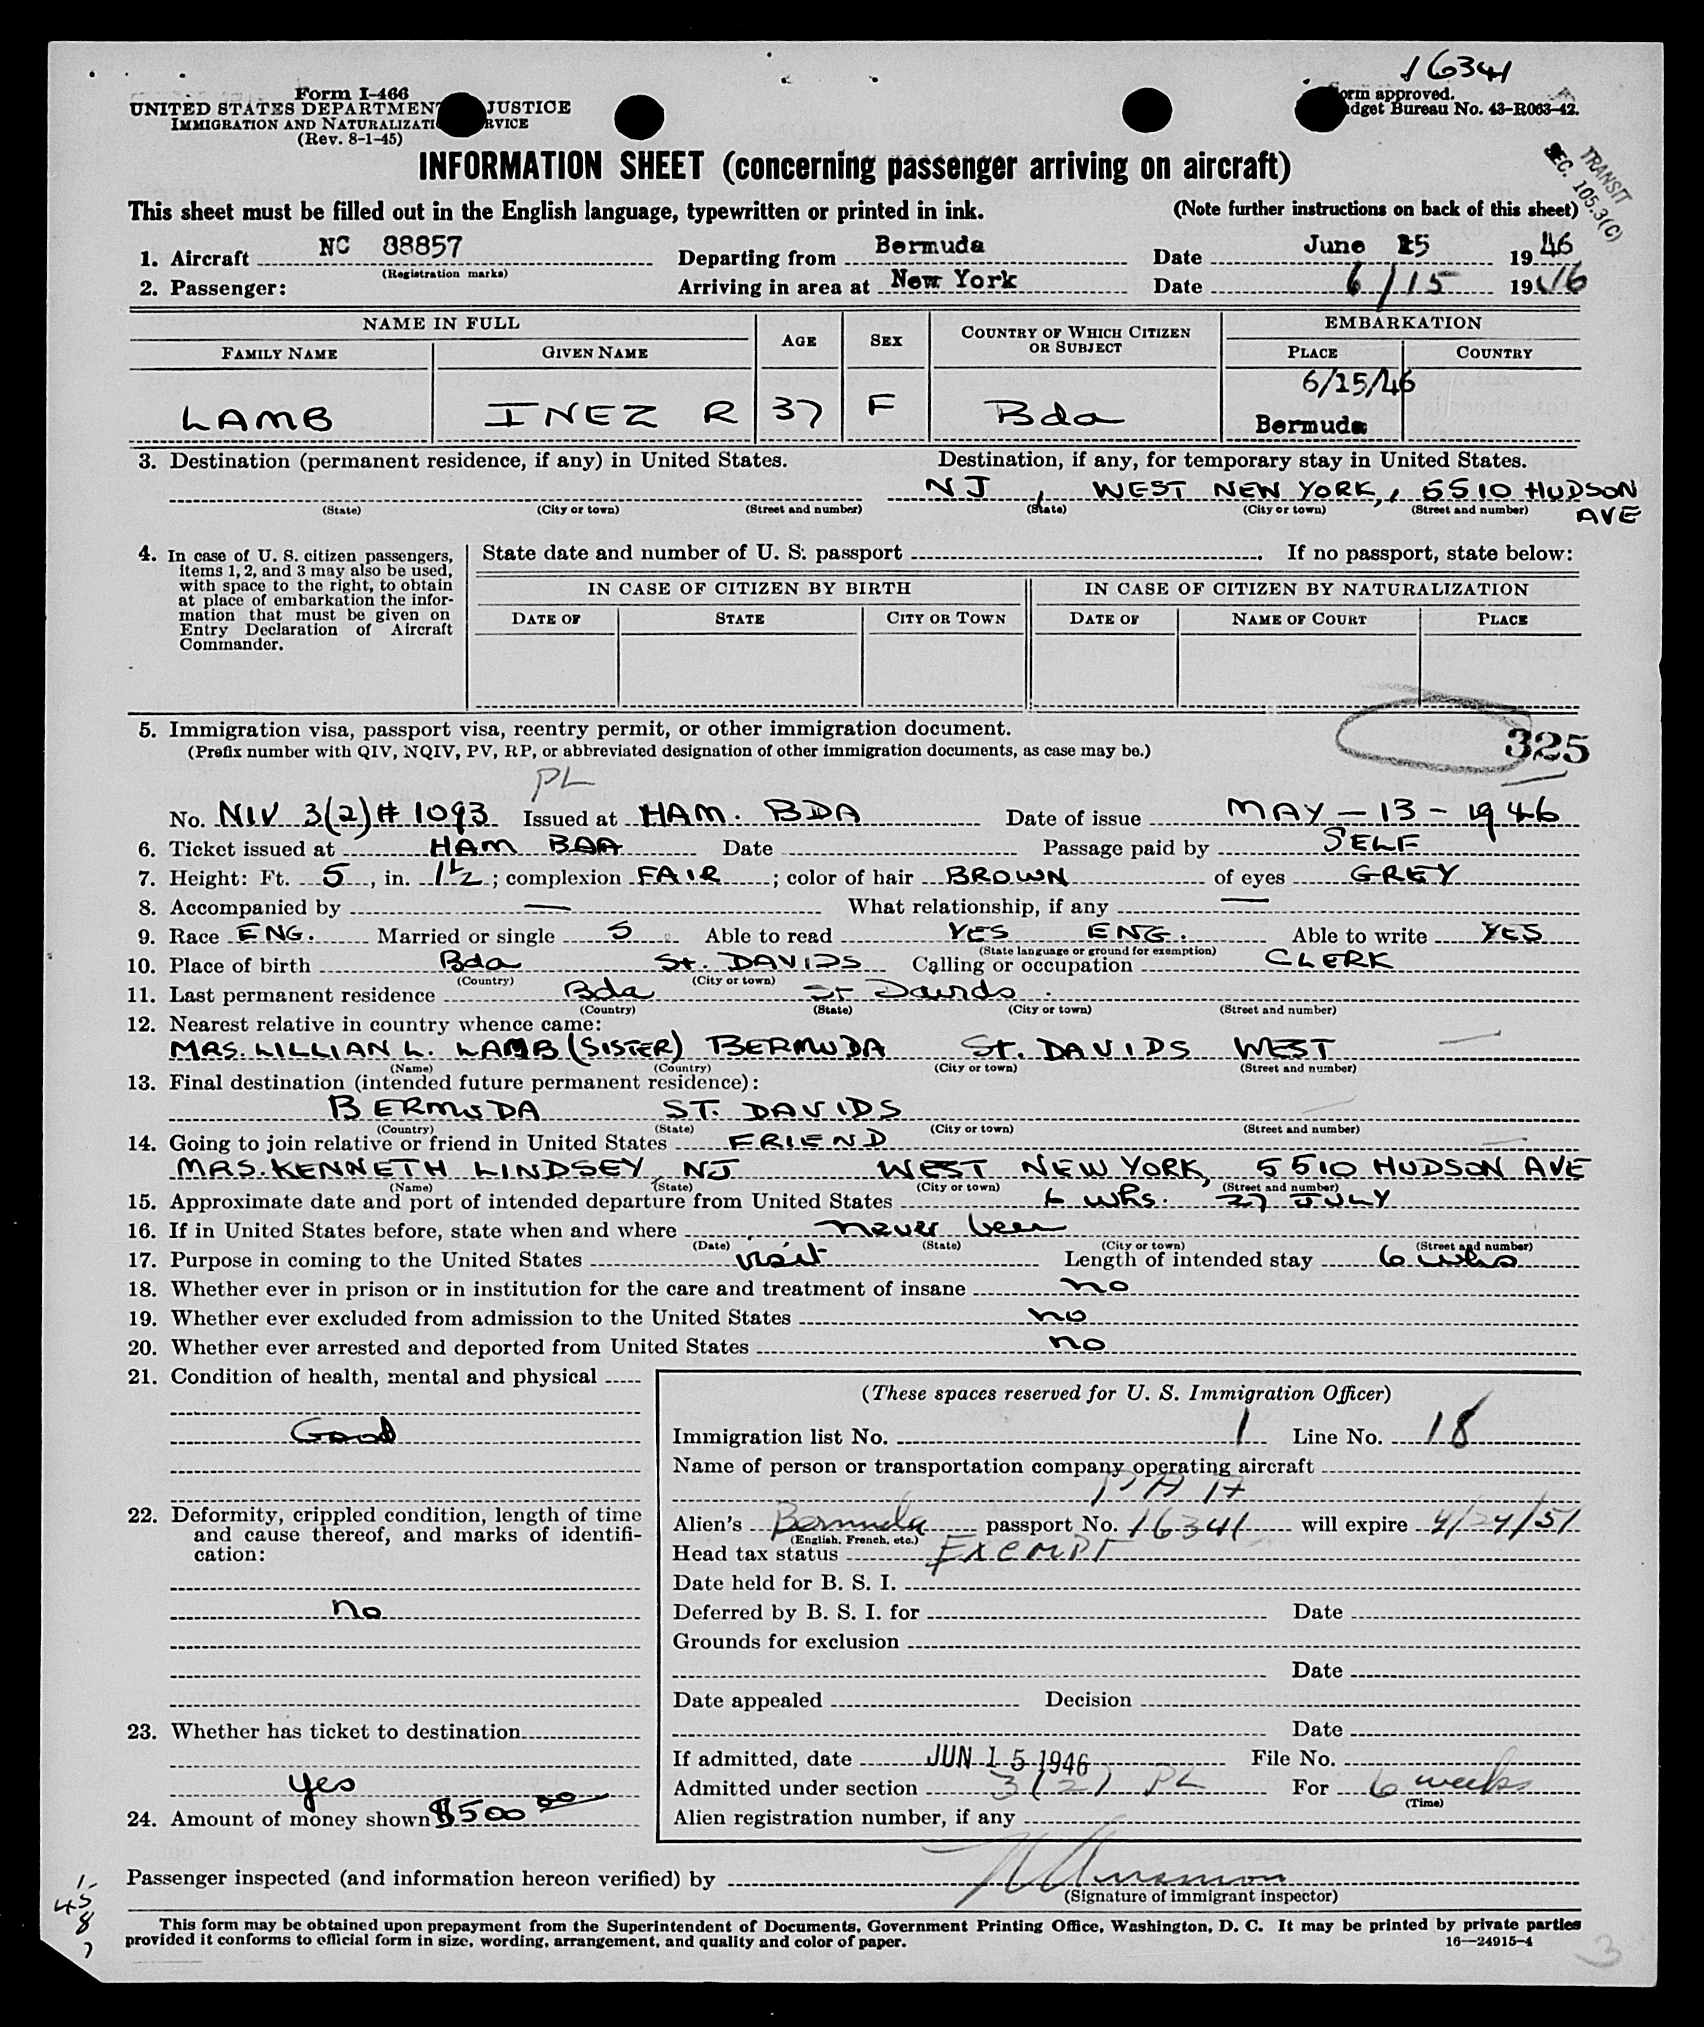 16341
Form I-466
UNITED STATES DEPARTMENT JUSTICE
IMMIGRATION AND NATURALIZATI RVICE
(Rev. 8-1-45)
orm approved.
dget Bureau No. 43-R063-42.
TRANSIT
SEC. 105.3(C)
INFORMATION SHEET (concerning passenger arriving on aircraft)
This sheet must be filled out in the English language, typewritten or printed in ink. (Note further instructions on back of this sheet)
1. Aircraft NC 88857 Departing from Bermuda Date June 15 19 46
(Registration marks)
2. Passenger: Arriving in area at New York Date 6/15 19 46
NAME IN FULL AGE SEX COUNTRY OF WHICH CITIZEN OR SUBJECT EMBARKATION
FAMILY NAME GIVEN NAME PLACE COUNTRY
6/15/46
LAMB INEZ R 37 F Bda Bermuda
3. Destination (permanent residence, if any) in United States. Destination, if any, for temporary stay in United States.
NJ, WEST NEW YORK, 5510 HUDSON AVE
(State) (City or town) (Street and number) (State) (City or town) (Street and number)
4. In case of U. S. citizen passengers, items 1, 2, and 3 may also be used, with space to the right, to obtain at place of embarkation the information that must be given on Entry Declaration of Aircraft Commander.
State date and number of U. S. passport . If no passport, state below:
IN CASE OF CITIZEN BY BIRTH IN CASE OF CITIZEN BY NATURALIZATION
DATE OF STATE CITY OR TOWN DATE OF NAME OF COURT PLACE
5. Immigration visa, passport visa, reentry permit, or other immigration document.
(Prefix number with QIV, NQIV, PV, RP, or abbreviated designation of other immigration documents, as case may be.)
325
PL
No. NIV 3(2)# 1093 Issued at HAM. BDA Date of issue MAY - 13 - 1946
6. Ticket issued at HAM BDA Date Passage paid by SELF
7. Height: Ft. 5, in. 1 1/2; complexion FAIR; color of hair BROWN of eyes GREY
8. Accompanied by — What relationship, if any —
9. Race ENG. Married or single S Able to read YES ENG. Able to write YES
(State language or ground for exemption)
10. Place of birth Bda St. DAVIDS Calling or occupation CLERK
(Country) (City or town)
11. Last permanent residence Bda St Davids.
(Country) (State) (City or town) (Street and number)
12. Nearest relative in country whence came:
MRS. LILLIAN L. LAMB (SISTER) BERMUDA St. DAVIDS WEST
(Name) (Country) (City or town) (Street and number)
13. Final destination (intended future permanent residence):
BERMUDA ST. DAVIDS
(Country) (State) (City or town) (Street and number)
14. Going to join relative or friend in United States FRIEND
MRS. KENNETH LINDSEY NJ WEST NEW YORK, 5510 HUDSON AVE
(Name) (State) (City or town) (Street and number)
15. Approximate date and port of intended departure from United States 6 wks. 27 JULY
16. If in United States before, state when and where never been
(Date) (State) (City or town) (Street and number)
17. Purpose in coming to the United States visit Length of intended stay 6 wks
18. Whether ever in prison or in institution for the care and treatment of insane no
19. Whether ever excluded from admission to the United States no
20. Whether ever arrested and deported from United States no
21. Condition of health, mental and physical
Good
22. Deformity, crippled condition, length of time and cause thereof, and marks of identification:
no
23. Whether has ticket to destination
yes
24. Amount of money shown $500 00
(These spaces reserved for U. S. Immigration Officer)
Immigration list No. 1 Line No. 18
Name of person or transportation company operating aircraft
PAA
Alien's Bermuda passport No. 16341 will expire 4/24/51
(English, French, etc.)
Head tax status Exempt
Date held for B. S. I.
Deferred by B. S. I. for Date
Grounds for exclusion
Date
Date appealed Decision
Date
If admitted, date JUN 15 1946 File No.
Admitted under section 3(2) PL For 6 weeks
(Time)
Alien registration number, if any
Passenger inspected (and information hereon verified) by
(Signature of immigrant inspector)
This form may be obtained upon prepayment from the Superintendent of Documents, Government Printing Office, Washington, D. C. It may be printed by private parties
provided it conforms to official form in size, wording, arrangement, and quality and color of paper. 16—24915-4
3